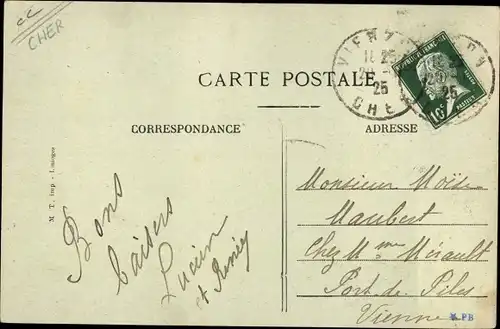 CC
CHER
VIERZON
18 25
25
CHER
REPUBLIQUE FRANÇAISE
10c
CARTE POSTALE
CORRESPONDANCE
ADRESSE
M. T. Imp - Limoges
Bons
baisers
Lucien
et Renée
Monsieur Moïse
Maubert
Chez Mme Mérault
Port de Piles
Vienne
K PB